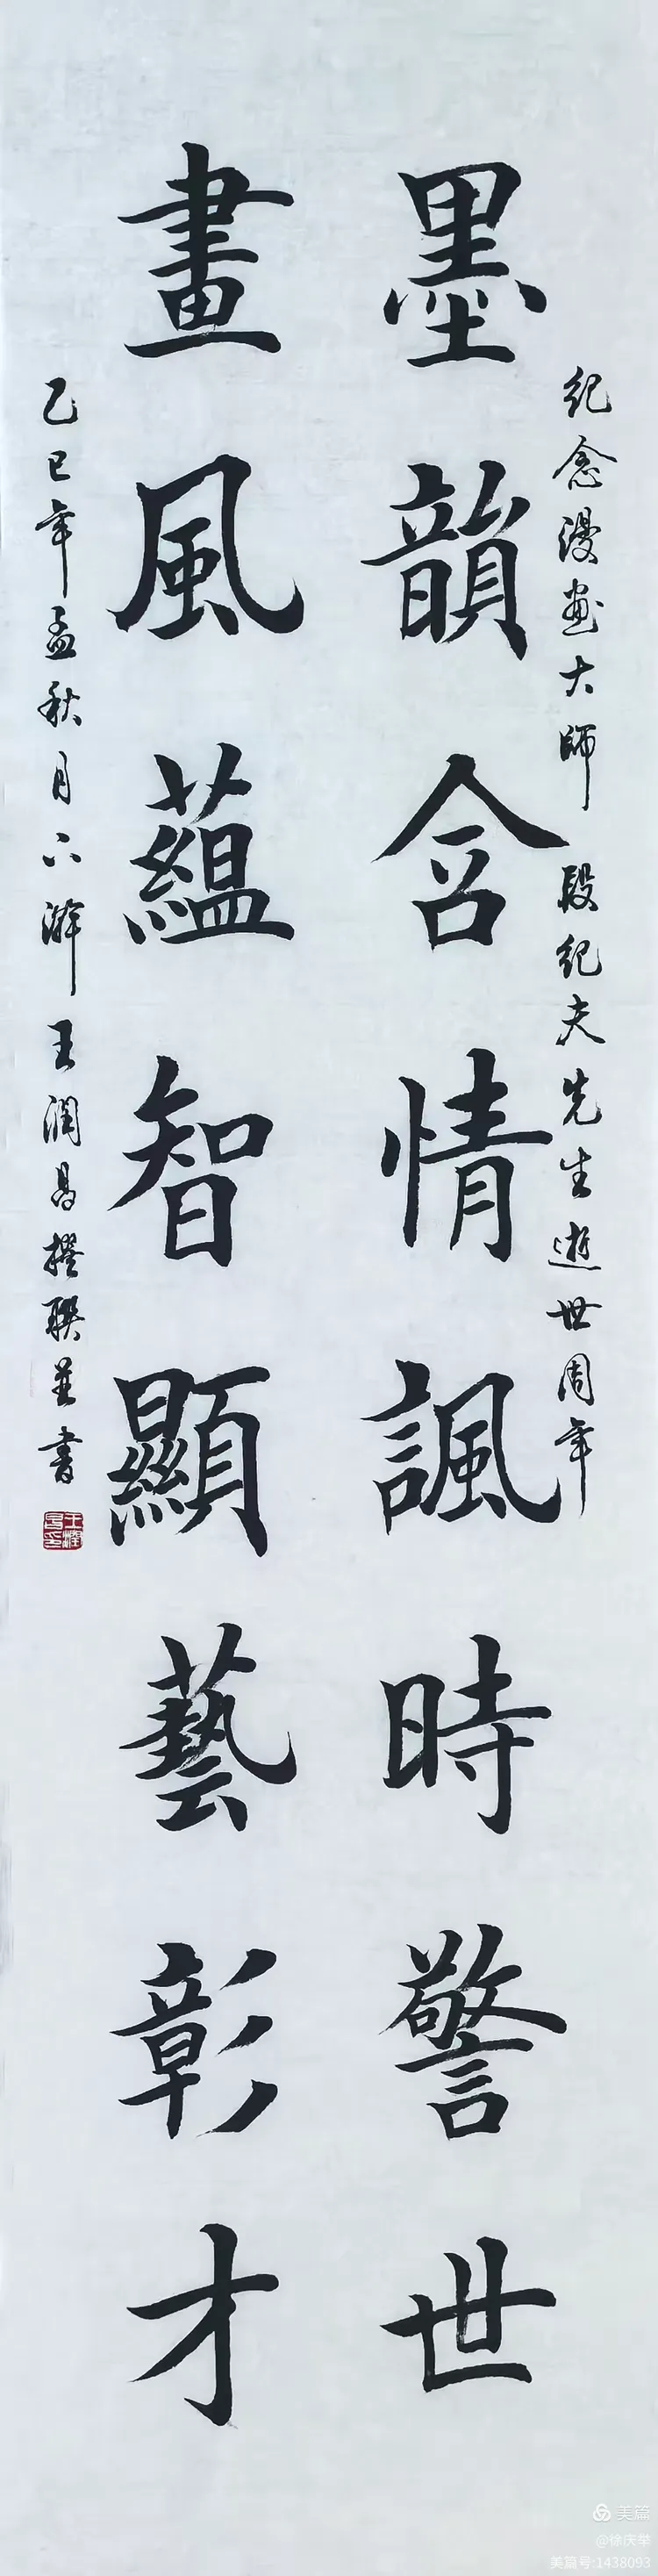 紀念漫畫大師 段紀夫先生逝世周年
墨韻含情諷時警世
畫風蘊智顯藝彰才
乙巳年孟秋月下澣 王潤昌撰聯並書
美篇
@徐庆举
美篇号:1438093